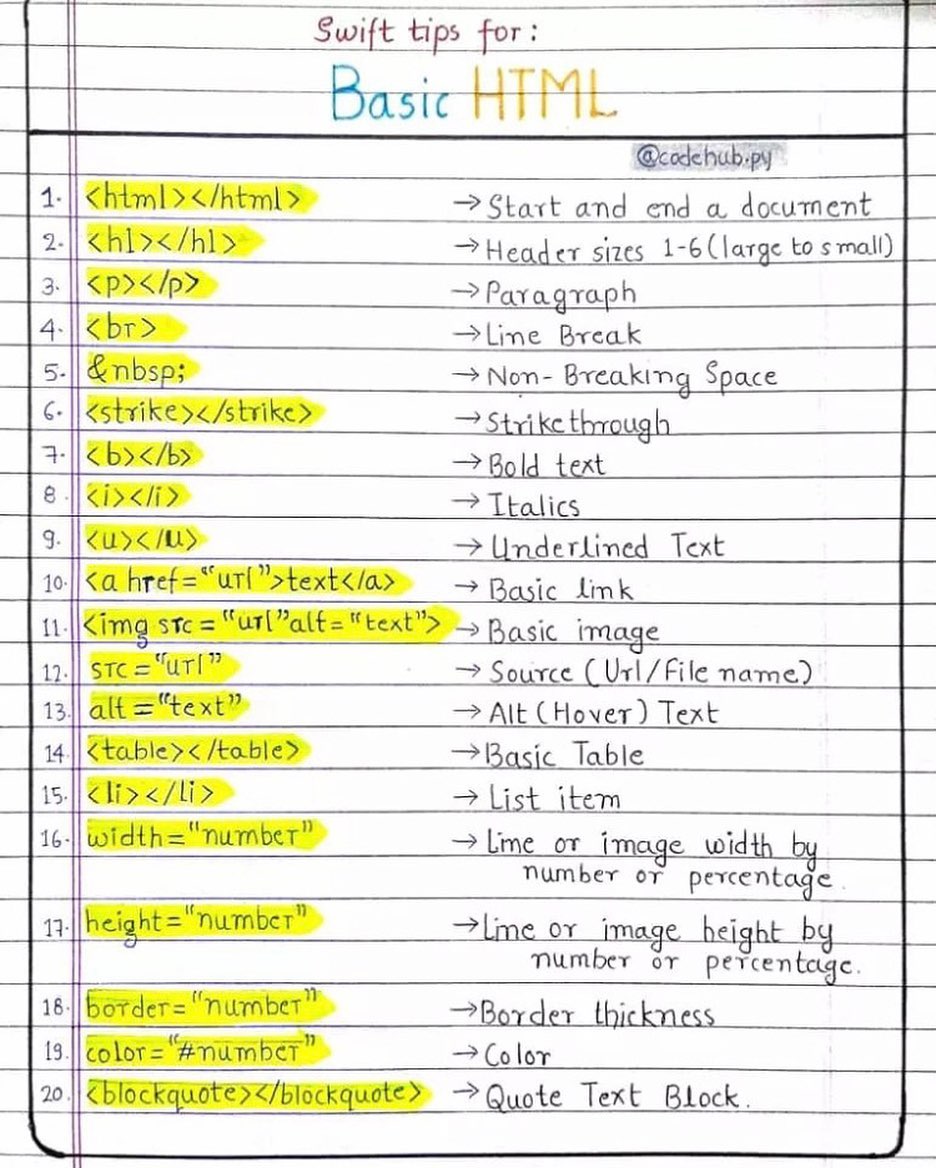 Swift tips for:
Basic HTML
@codehub.py
1. <html></html> → Start and end a document
2. <h1></h1> → Header sizes 1-6 (large to small)
3. <p></p> → Paragraph
4. <br> → Line Break
5. &nbsp; → Non-Breaking Space
6. <strike></strike> → Strikethrough
7. <b></b> → Bold text
8. <i></i> → Italics
9. <u></u> → Underlined Text
10. <a href="url">text</a> → Basic link
11. <img src="url"alt="text"> → Basic image
12. src="url" → Source (Url/File name)
13. alt="text" → Alt (Hover) Text
14. <table></table> → Basic Table
15. <li></li> → List item
16. width="number" → Line or image width by
number or percentage.
17. height="number" → Line or image height by
number or percentage.
18. border="number" → Border thickness
19. color="#number" → Color
20. <blockquote></blockquote> → Quote Text Block.